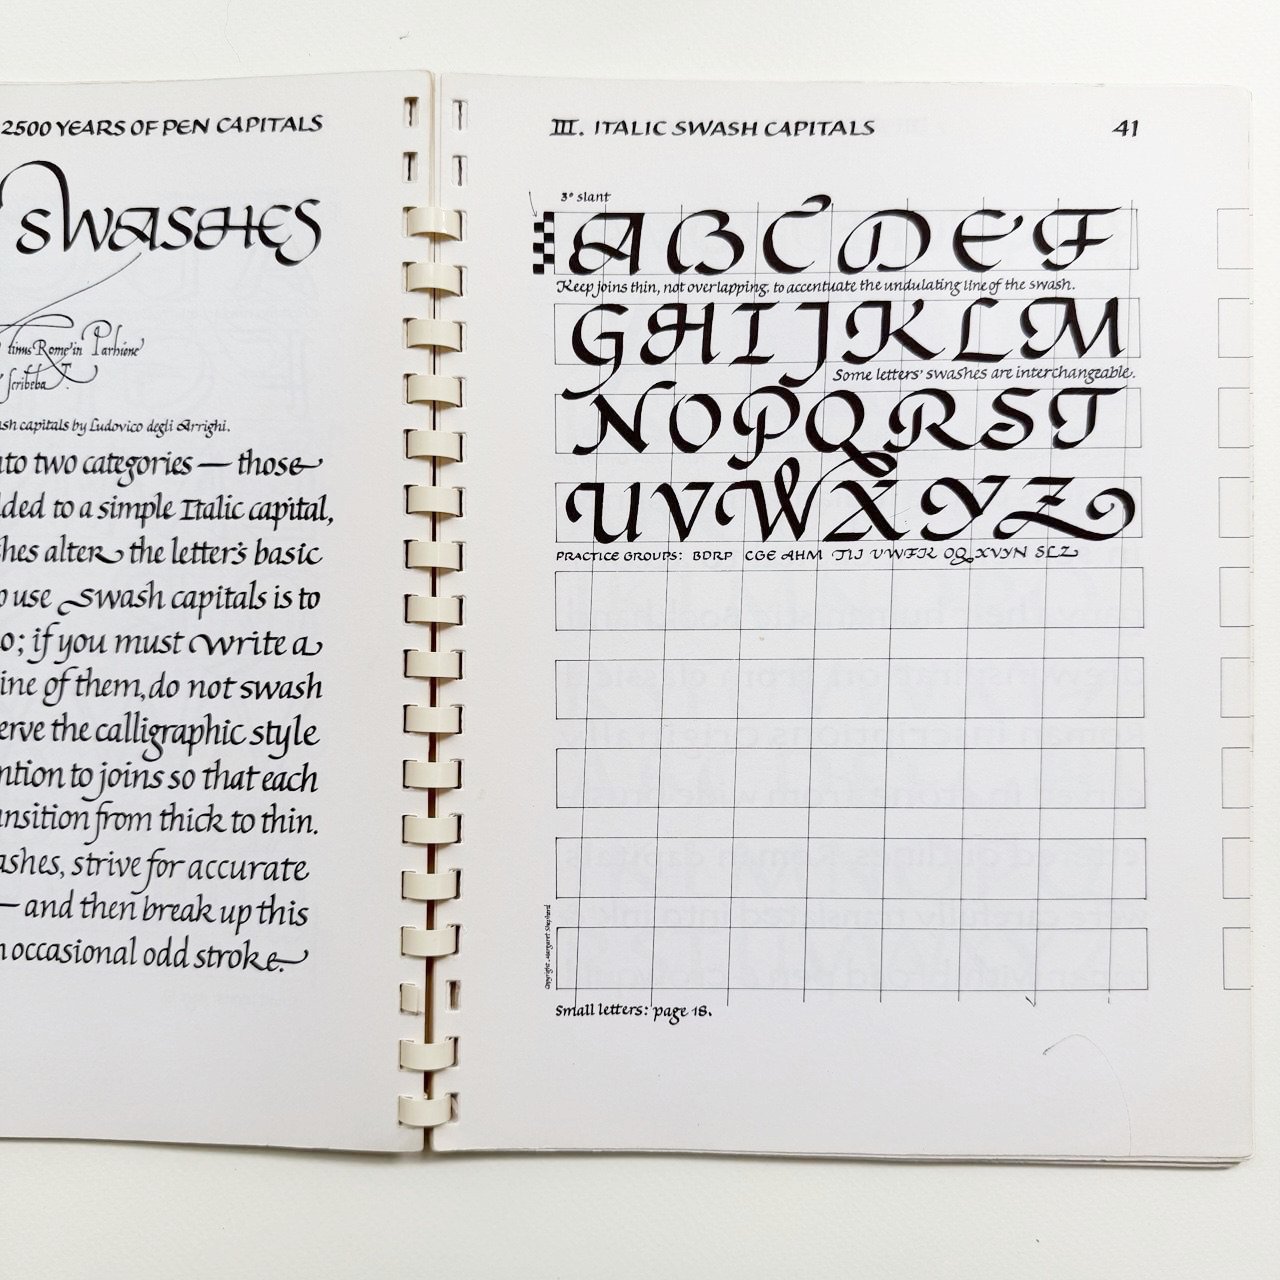 2500 YEARS OF PEN CAPITALS
SWASHES
tinus Rome in Parhione
scribebat
sh capitals by Ludovico degli Arrighi.
to two categories — those
ded to a simple Italic capital,
hes alter the letter's basic
use swash capitals is to
o; if you must write a
ine of them, do not swash
erve the calligraphic style
ntion to joins so that each
nsition from thick to thin.
ashes, strive for accurate
— and then break up this
occasional odd stroke.
III. ITALIC SWASH CAPITALS 41
3° slant
A B C D E F
Keep joins thin, not overlapping, to accentuate the undulating line of the swash.
G H I J K L M
Some letters' swashes are interchangeable.
N O P Q R S T
U V W X Y Z
PRACTICE GROUPS: BDRP CGE AHM TIJ UWFK OQ XVYN SLZ
Copyright Margaret Shepherd
Small letters: page 18.